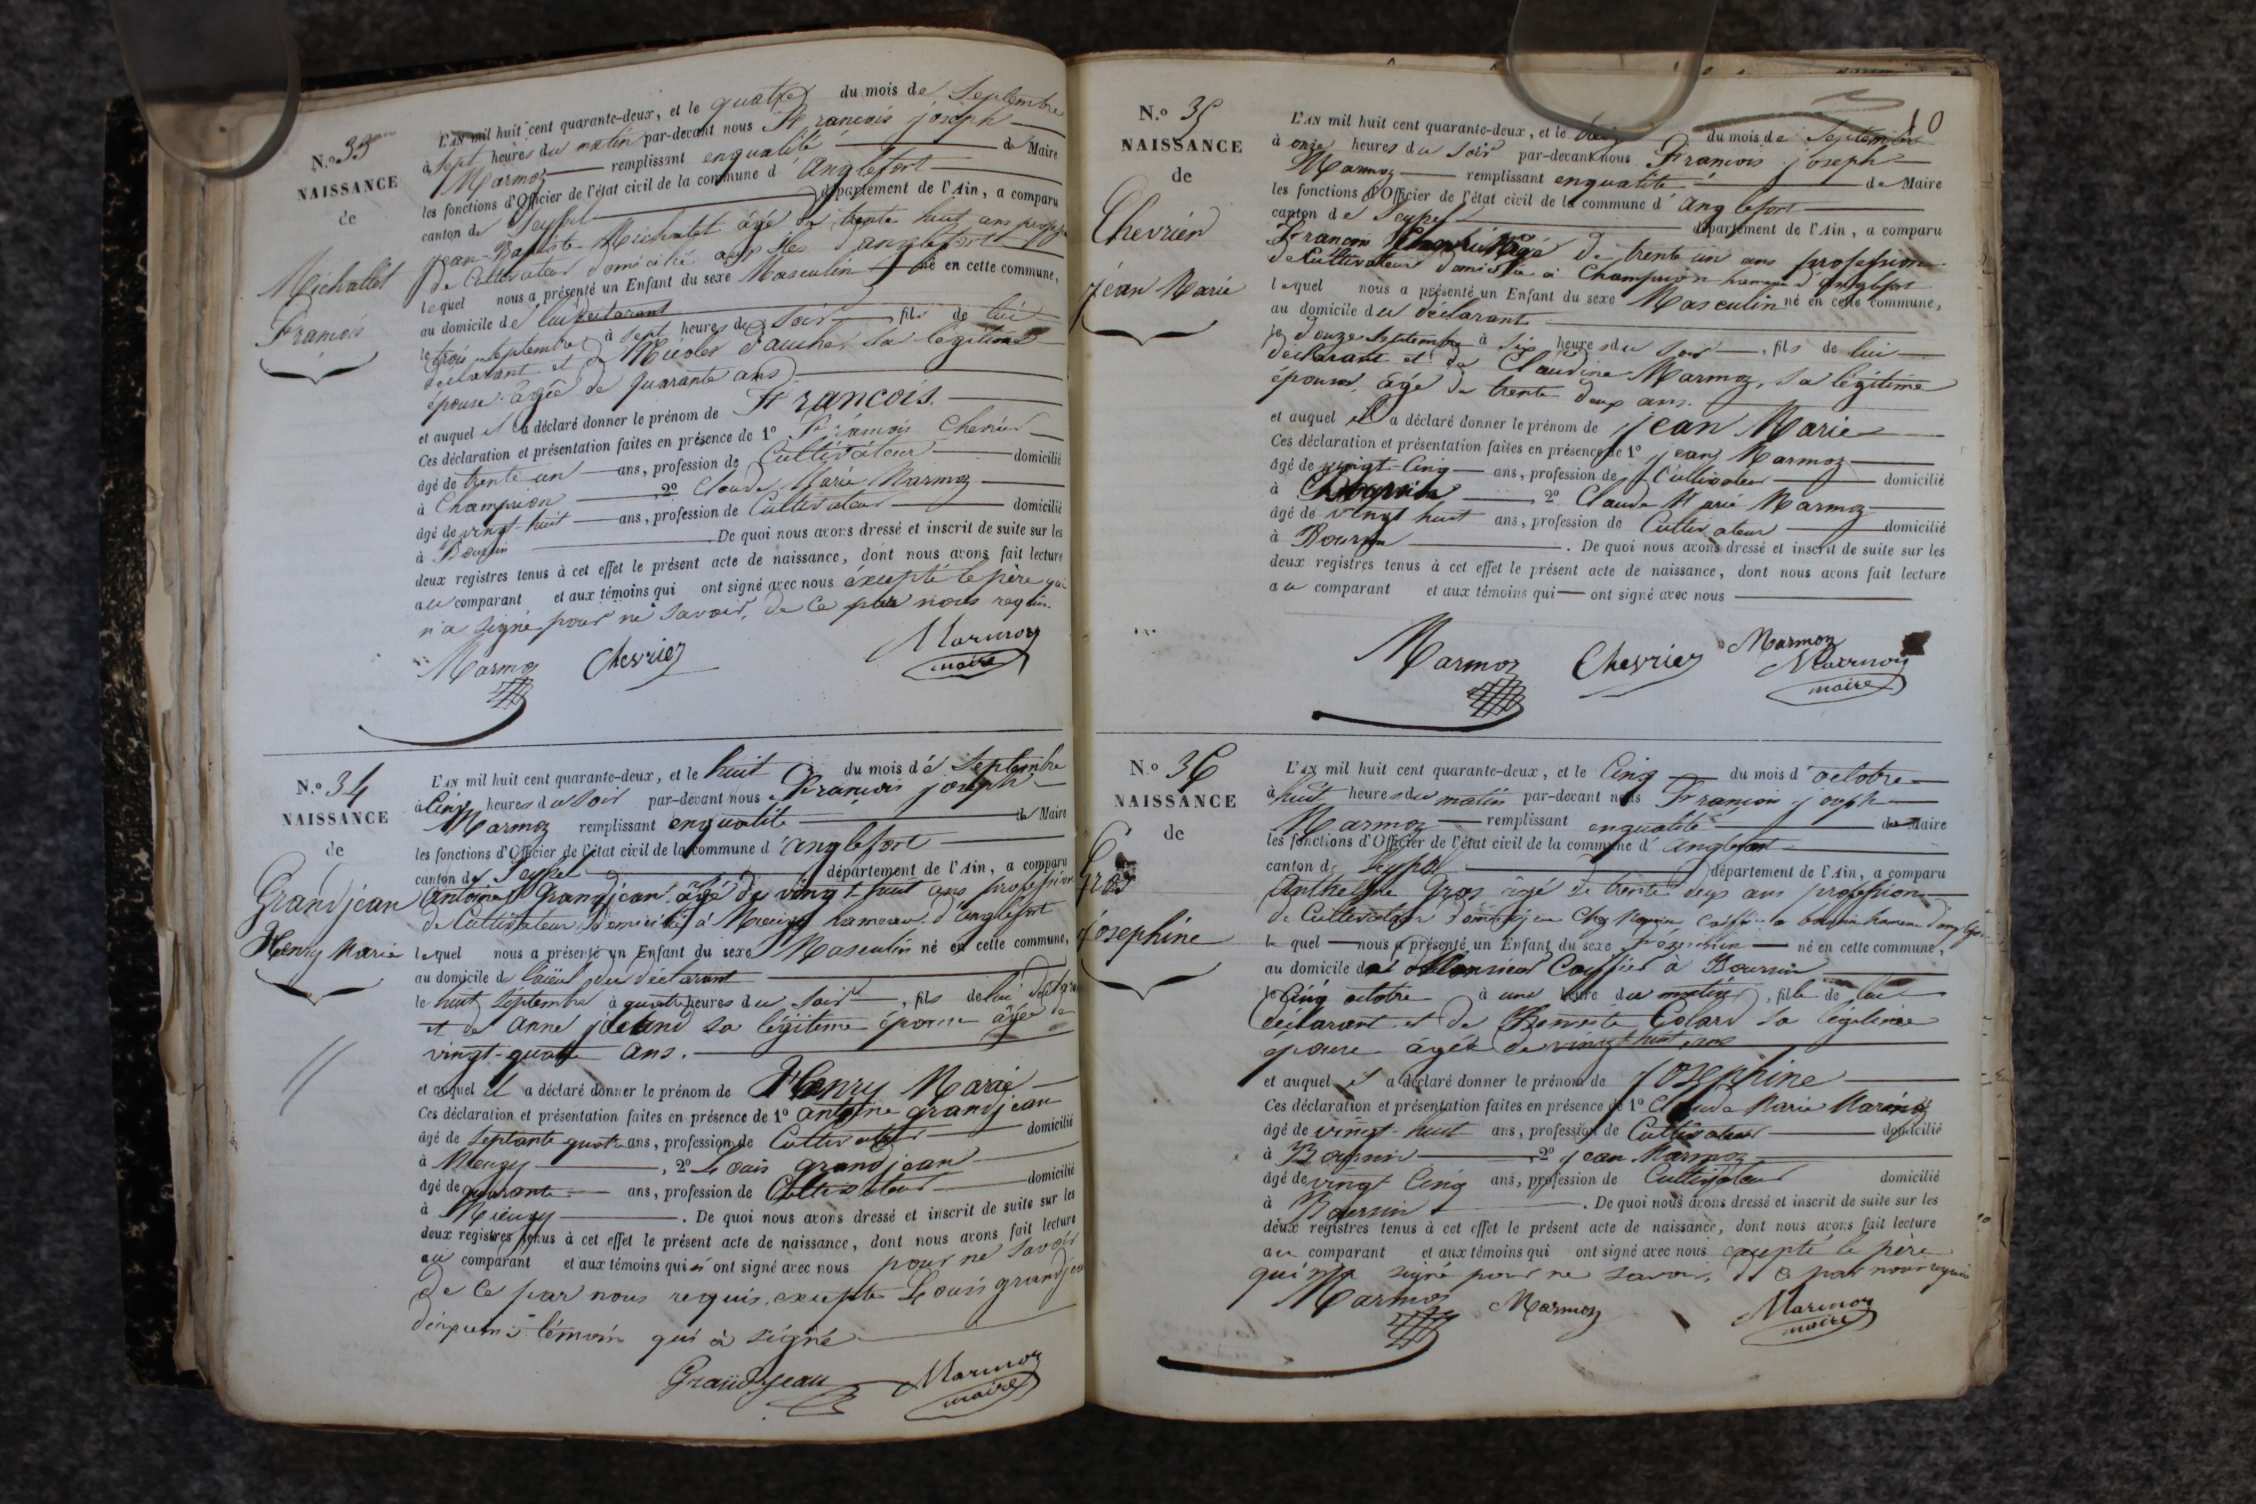 N.º 33
NAISSANCE
de
Michallet
François
L'AN mil huit cent quarante-deux, et le quatre du mois de Septembre
à sept heures du matin par-devant nous François joseph
Marmoz remplissant en qualité de Maire
les fonctions d'Officier de l'état civil de la commune d'Anglefort
canton de Seyssel département de l'Ain, a comparu
jean-Baptiste Michalet âgé de trente huit ans
de Cultivateur domicilié aux iles d'anglefort
lequel nous a présenté un Enfant du sexe Masculin né en cette commune,
au domicile de lui déclarant
le trois septembre à sept heures du soir fils de lui
déclarant et de sa légitime
épouse âgée de quarante ans
et auquel il a déclaré donner le prénom de François
Ces déclaration et présentation faites en présence de 1º François
âgé de trente un ans, profession de Cultivateur domicilié
à Champrion 2º Claude Marie Marmoz
âgé de vingt-huit ans, profession de Cultivateur domicilié
à Boursin . De quoi nous avons dressé et inscrit de suite sur les
deux registres tenus à cet effet le présent acte de naissance, dont nous avons fait lecture
au comparant et aux témoins qui ont signé avec nous excepté le père qui
n'a signé pour ne savoir, de ce nous requis.
Marmoz Chevrier Marmoz
maire
N.º 34
NAISSANCE
de
Grandjean
Henry Marie
L'AN mil huit cent quarante-deux, et le huit du mois de Septembre
à Cinq heures du soir par-devant nous François joseph
Marmoz remplissant en qualité de Maire
les fonctions d'Officier de l'état civil de la commune d'anglefort
canton de Seyssel département de l'Ain, a comparu
antoine Grandjean âgé de vingt huit ans profession
de Cultivateur domicilié à hameau d'anglefort
lequel nous a présenté un Enfant du sexe Masculin né en cette commune,
au domicile de du déclarant
le huit Septembre à quatre heures du soir, fils de lui
et de anne sa légitime épouse âgée de
vingt-quatre ans.
et auquel il a déclaré donner le prénom de Henry Marie
Ces déclaration et présentation faites en présence de 1º antoine grandjean
âgé de septante quatre ans, profession de Cultivateur domicilié
à , 2º Louis grandjean
âgé de quarante ans, profession de Cultivateur domicilié
à . De quoi nous avons dressé et inscrit de suite sur les
deux registres tenus à cet effet le présent acte de naissance, dont nous avons fait lecture
au comparant et aux témoins qui ont signé avec nous pour ne savoir
de ce par nous requis, excepté Louis grandjean
témoin qui à signé
Grandjean Marmoz
maire
10
N.º 35
NAISSANCE
de
Chevrier
jean Marie
L'AN mil huit cent quarante-deux, et le du mois de Septembre
à onze heures du soir par-devant nous François joseph
Marmoz remplissant en qualité de Maire
les fonctions d'Officier de l'état civil de la commune d'anglefort
canton de Seyssel département de l'Ain, a comparu
François âgé de trente un ans profession
de Cultivateur domicilié à Champrion hameau d'anglefort
lequel nous a présenté un Enfant du sexe Masculin né en cette commune,
au domicile du déclarant
le douze Septembre à six heures du soir, fils de lui
déclarant et de Claudine Marmoz, sa légitime
épouse, âgé de trente deux ans.
et auquel il a déclaré donner le prénom de jean Marie
Ces déclaration et présentation faites en présence de 1º jean Marmoz
âgé de vingt-cinq ans, profession de Cultivateur domicilié
à 2º Claude Marie Marmoz
âgé de vingt huit ans, profession de Cultivateur domicilié
à Boursin . De quoi nous avons dressé et inscrit de suite sur les
deux registres tenus à cet effet le présent acte de naissance, dont nous avons fait lecture
au comparant et aux témoins qui ont signé avec nous
Marmoz Chevrier Marmoz
Marmoz
maire
N.º 36
NAISSANCE
de
Gros
josephine
L'AN mil huit cent quarante-deux, et le Cinq du mois d'octobre
à huit heures du matin par-devant nous François joseph
Marmoz remplissant en qualité de Maire
les fonctions d'Officier de l'état civil de la commune d'anglefort
canton de Seyssel département de l'Ain, a comparu
Anthelme Gros âgé de trente deux ans profession
de Cultivateur Chez hameau d'anglefort
lequel nous a présenté un Enfant du sexe féminin né en cette commune,
au domicile de Monsieur à Boursin
le Cinq octobre à une heure du matin, fille de lui
déclarant et de sa légitime
épouse âgée de vingt huit ans
et auquel il a déclaré donner le prénom de josephine
Ces déclaration et présentation faites en présence de 1º Claude Marie Marmoz
âgé de vingt-huit ans, profession de Cultivateur domicilié
à Boursin 2º jean Marmoz
âgé de vingt Cinq ans, profession de Cultivateur domicilié
à Boursin . De quoi nous avons dressé et inscrit de suite sur les
deux registres tenus à cet effet le présent acte de naissance, dont nous avons fait lecture
au comparant et aux témoins qui ont signé avec nous excepté le père
qui n'a signé pour ne savoir, de ce par nous requis
Marmoz Marmoz Marmoz
maire